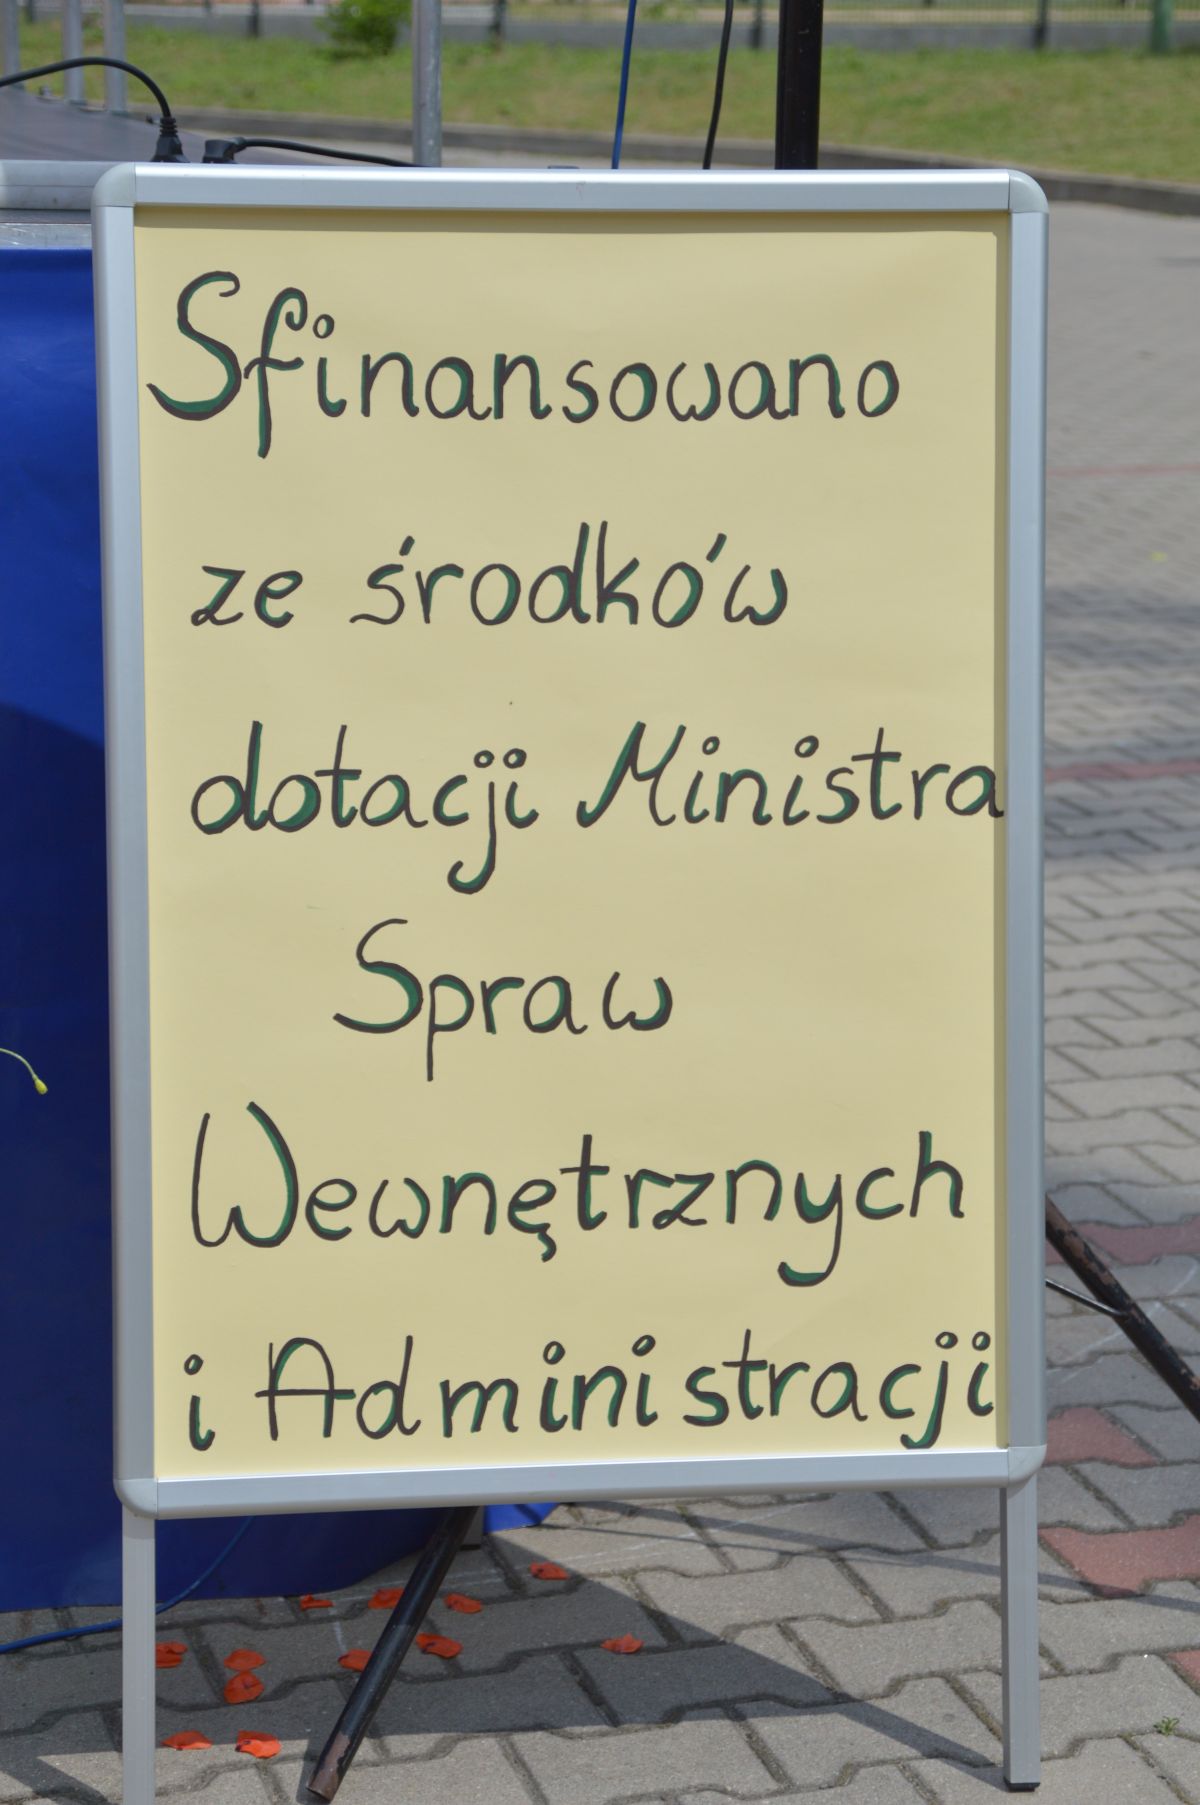 Sfinansowano
ze środków
dotacji Ministra
Spraw
Wewnętrznych
i Administracji